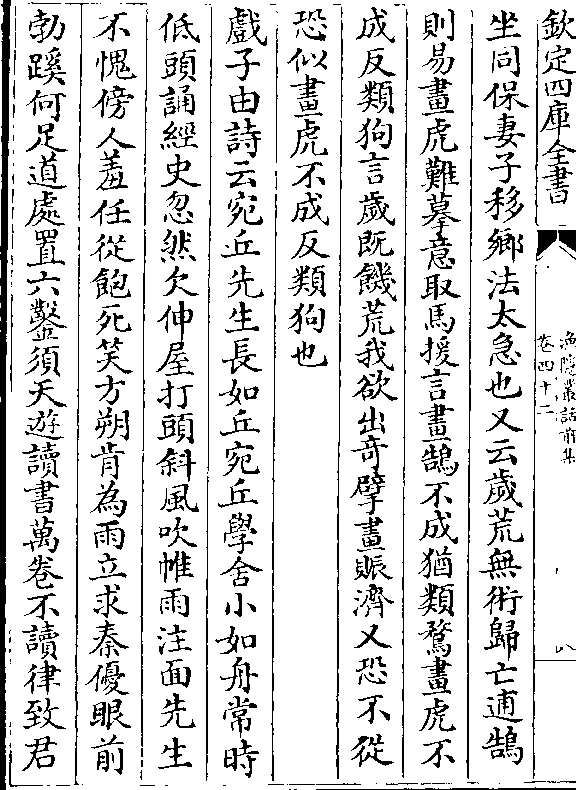 欽定四庫全書
漁隱叢話前集
卷四十二
八
坐同保妻子移鄉法太急也又云歲荒無術歸亡逋鵠
則易畫虎難摹意取馬援言畫鵠不成猶類鶩畫虎不
成反類狗言歲既饑荒我欲出奇擘畫賑濟又恐不從
恐似畫虎不成反類狗也
戲子由詩云宛丘先生長如丘宛丘學舍小如舟常時
低頭誦經史忽然欠伸屋打頭斜風吹帷雨注面先生
不愧傍人羞任從飽死笑方朔肯為雨立求秦優眼前
勃蹊何足道處置六鑿須天遊讀書萬卷不讀律致君